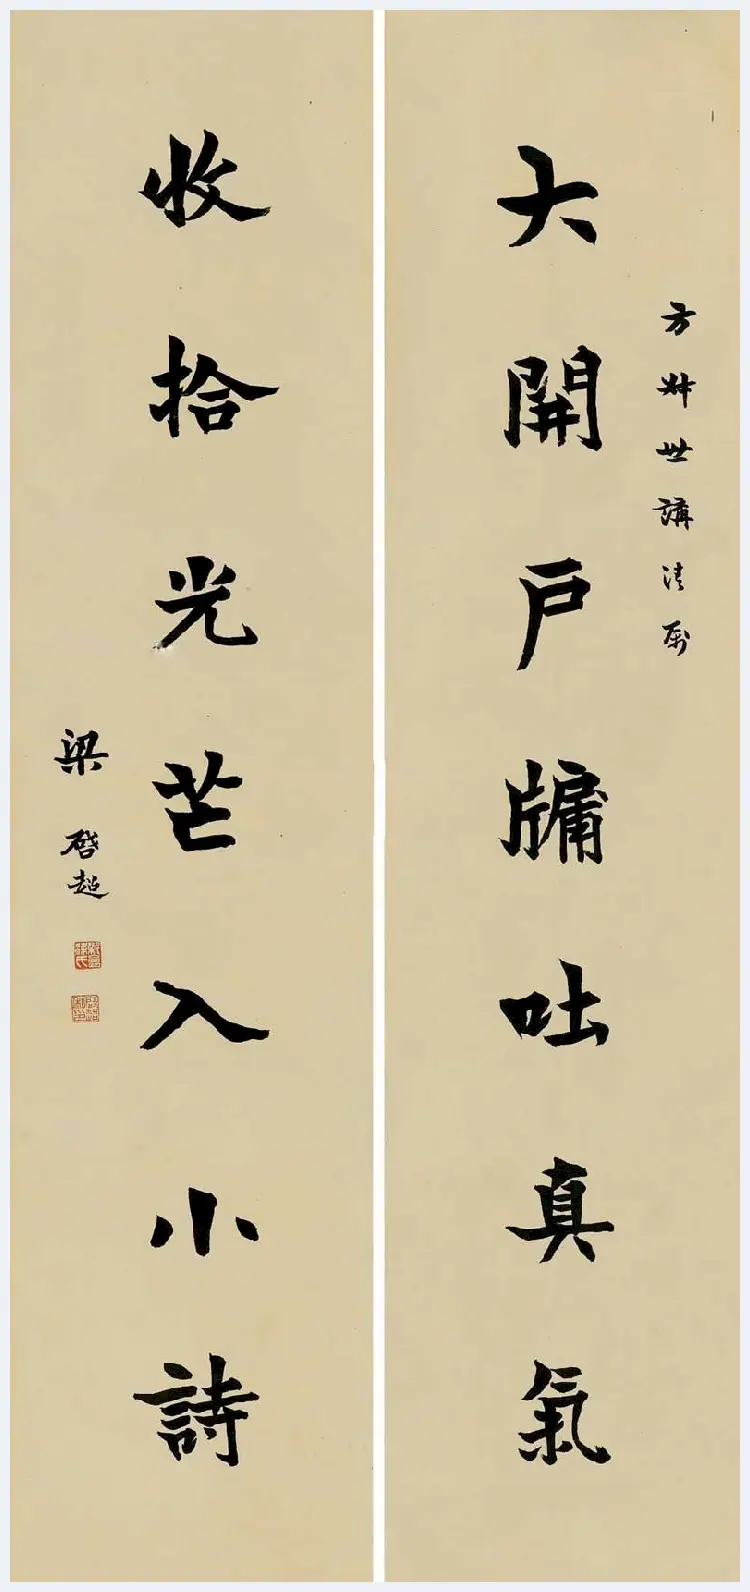 方叔世講清屬
大開戶牖吐真氣
收拾光芒入小詩
梁啓超